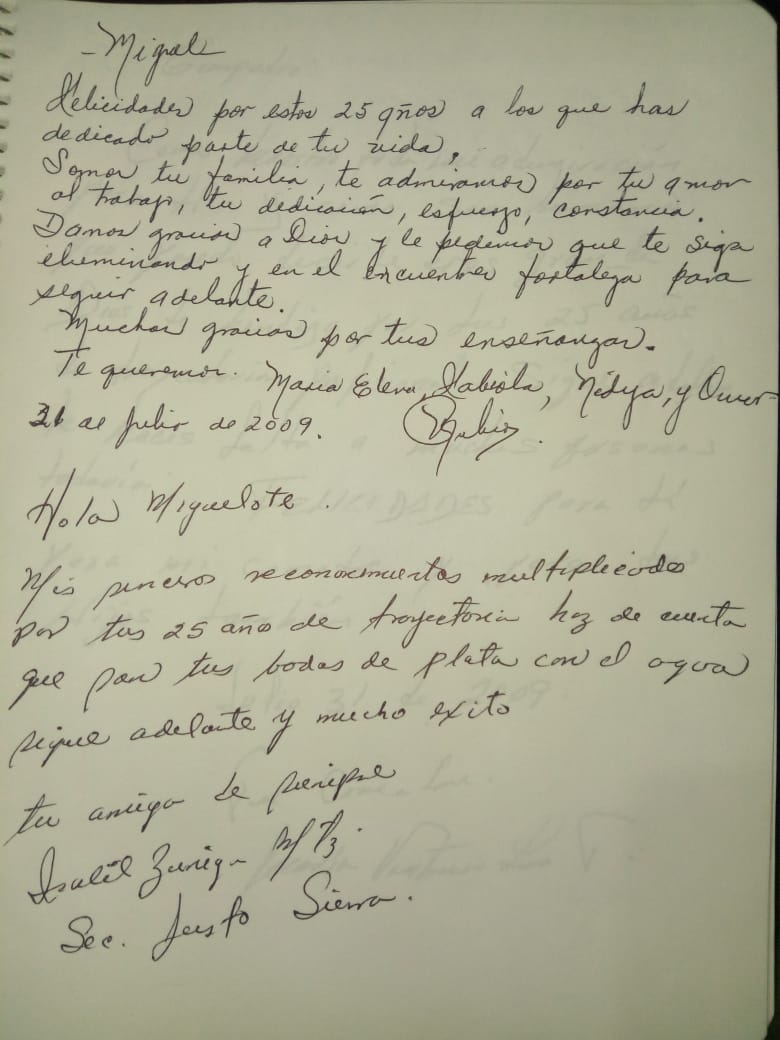 - Miguel
Felicidades por estos 25 años a los que has
dedicado parte de tu vida,
Somos tu familia, te admiramos por tu amor
al trabajo, tu dedicación, esfuerzo, constancia.
Damos gracias a Dios y le pedimos que te siga
iluminando y en el encuentres fortaleza para
seguir adelante.
Muchas gracias por tus enseñanzas.
Te queremos. Maria Elena, Fabiola, Nidya, y Omar
31 de Julio de 2009. Rubio.
Hola Miguelote.
Mis sinceros reconocimientos multiplicados
por tus 25 año de trayectoria haz de cuenta
que son tus bodas de plata con el agua
sigue adelante y mucho exito
tu amiga de siempre
Zuñiga Mtz.
Sec. Justo Sierra.